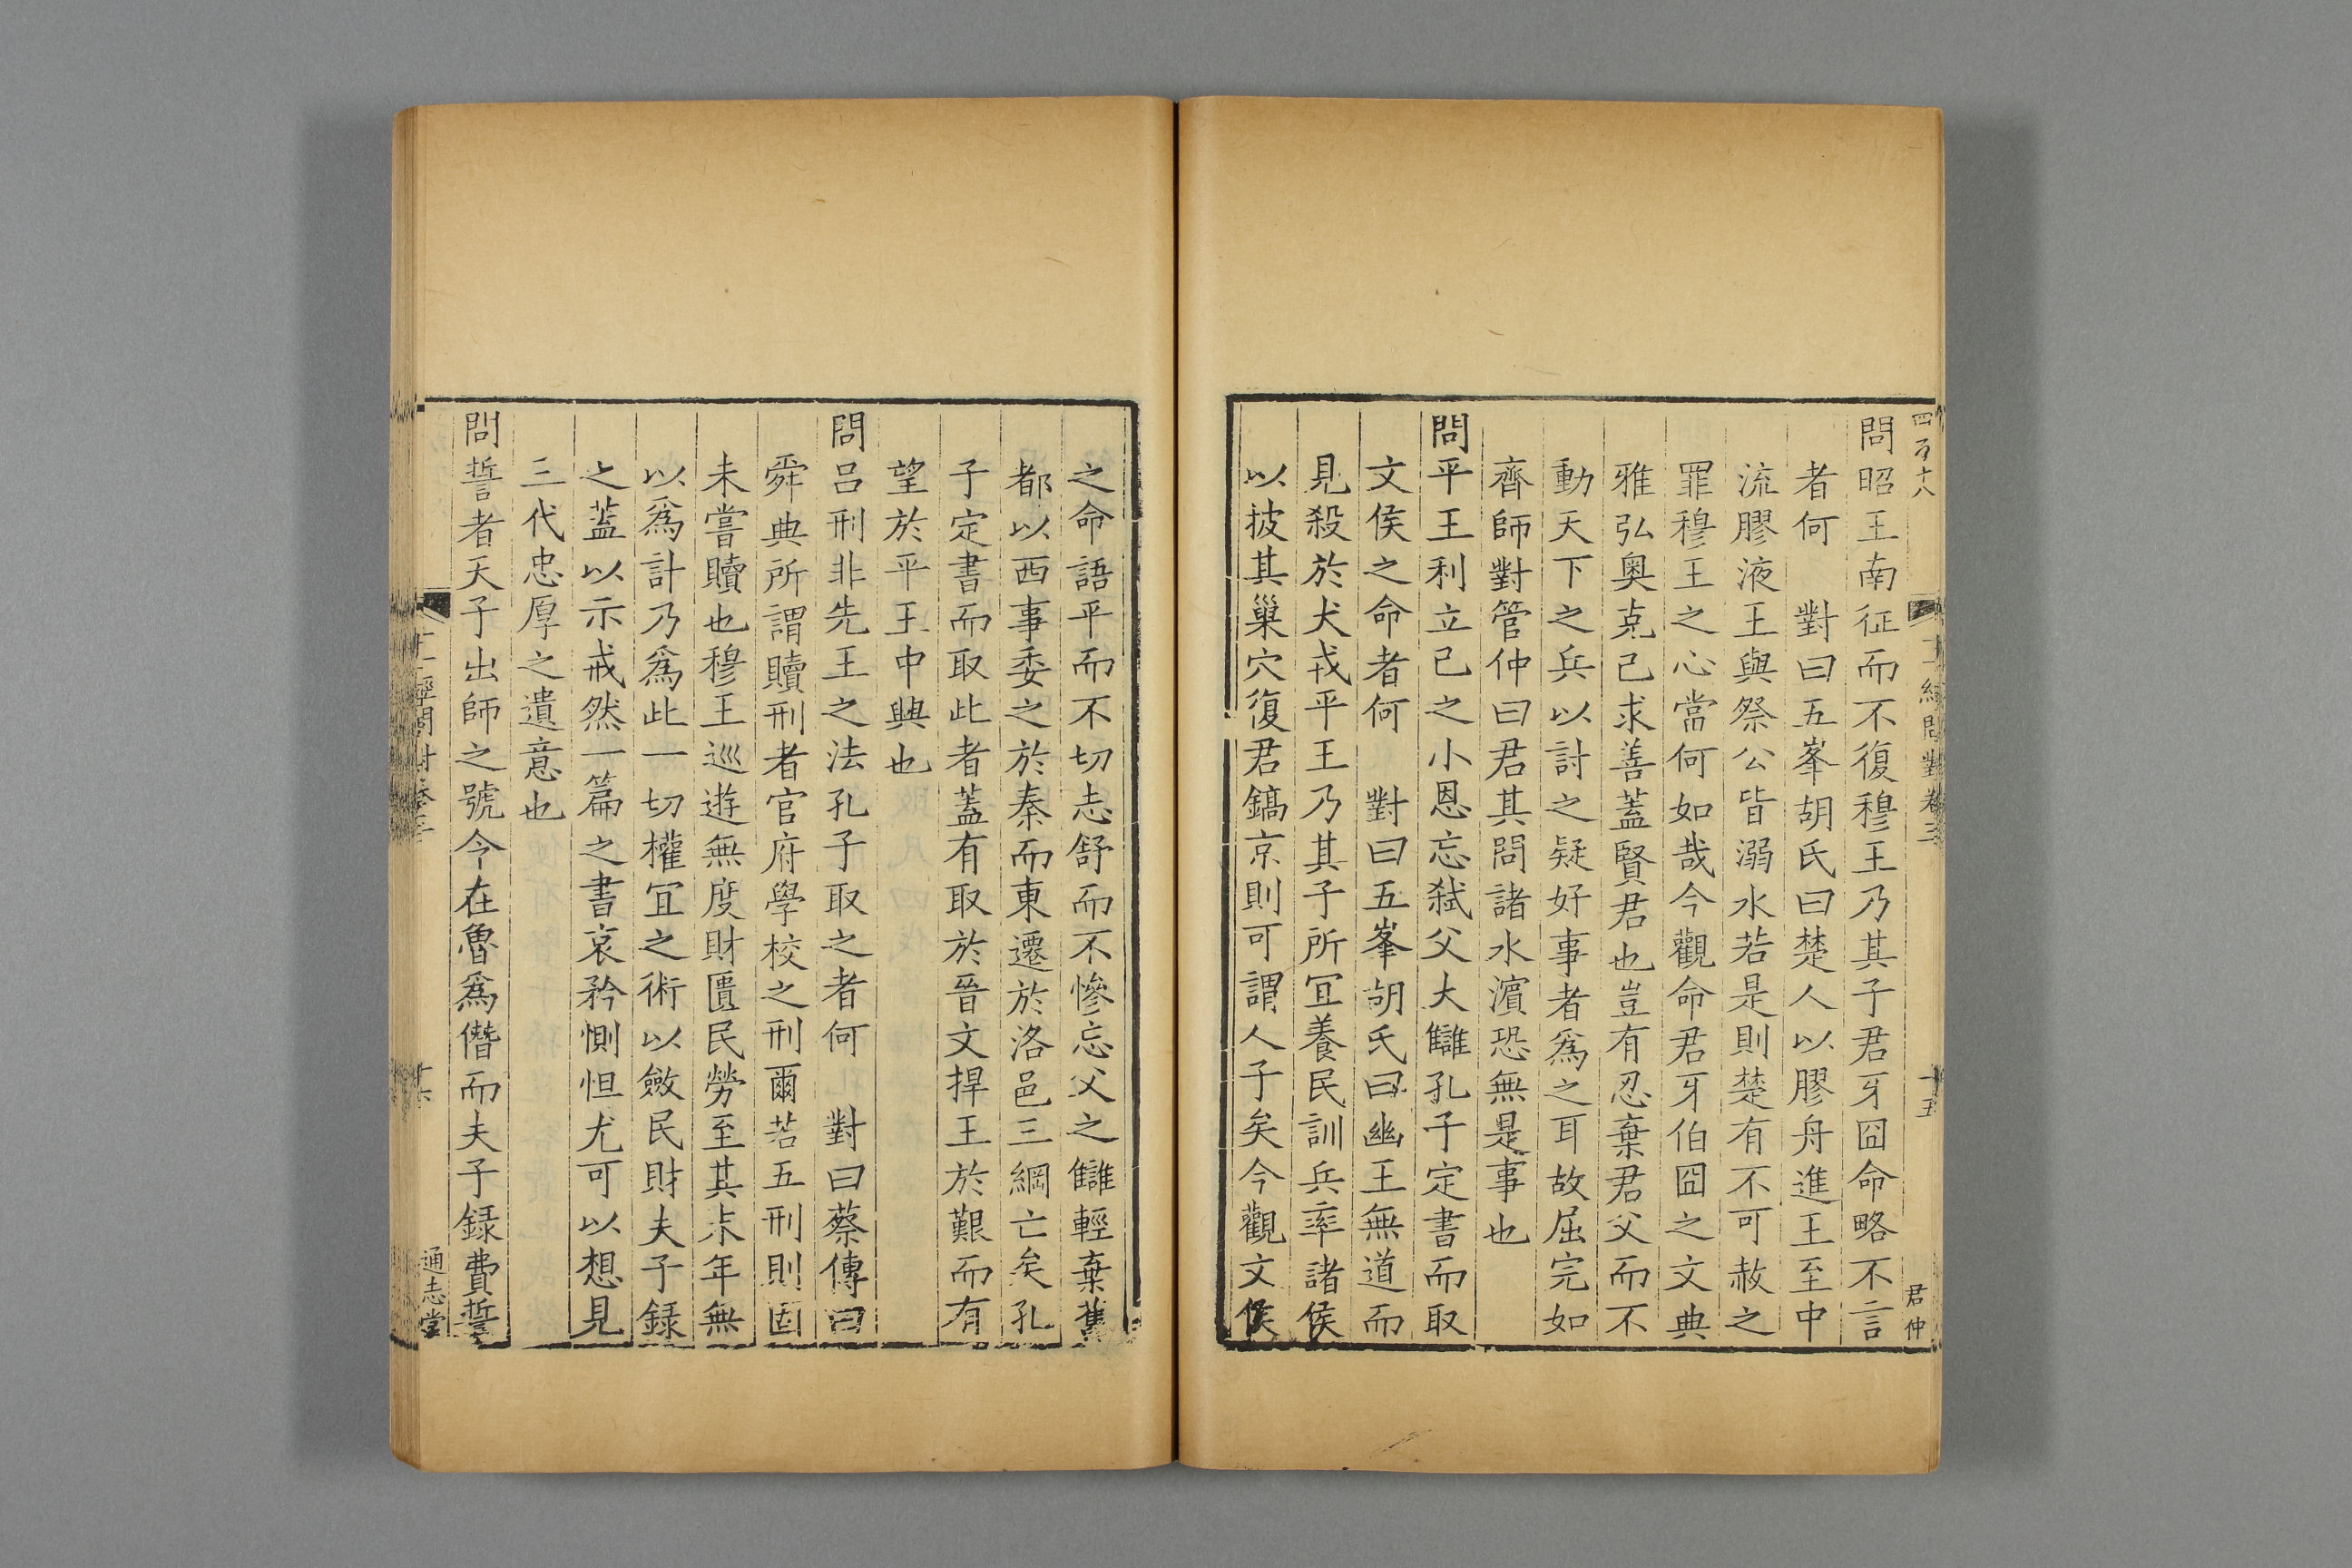 四百十八
十一經問對卷三
十五
君仲
問昭王南征而不復穆王乃其子君牙囧命略不言
者何　對曰五峯胡氏曰楚人以膠舟進王至中
流膠液王與祭公皆溺水若是則楚有不可赦之
罪穆王之心當何如哉今觀命君牙伯囧之文典
雅弘奥克己求善蓋賢君也豈有忍棄君父而不
動天下之兵以討之疑好事者爲之耳故屈完如
齊師對管仲曰君其問諸水濵恐無是事也
問平王利立己之小恩忘弑父大讎孔子定書而取
文侯之命者何　對曰五峯胡氏曰幽王無道而
見殺於犬戎平王乃其子所冝養民訓兵率諸侯
以披其巢穴復君鎬京則可謂人子矣今觀文侯
之命語平而不切志舒而不慘忘父之讎輕棄舊
都以西事委之於秦而東遷於洛邑三綱亡矣孔
子定書而取此者蓋有取於晉文捍王於艱而有
望於平王中興也
問吕刑非先王之法孔子取之者何　對曰蔡傳曰
舜典所謂贖刑者官府學校之刑爾若五刑則固
未嘗贖也穆王巡遊無度財匱民勞至其末年無
以爲計乃爲此一切權冝之術以斂民財夫子録
之蓋以示戒然一篇之書哀矜惻怛尤可以想見
三代忠厚之遺意也
問誓者天子出師之號令在魯爲僭而夫子録費誓
十一經問對卷三
十六
通志堂